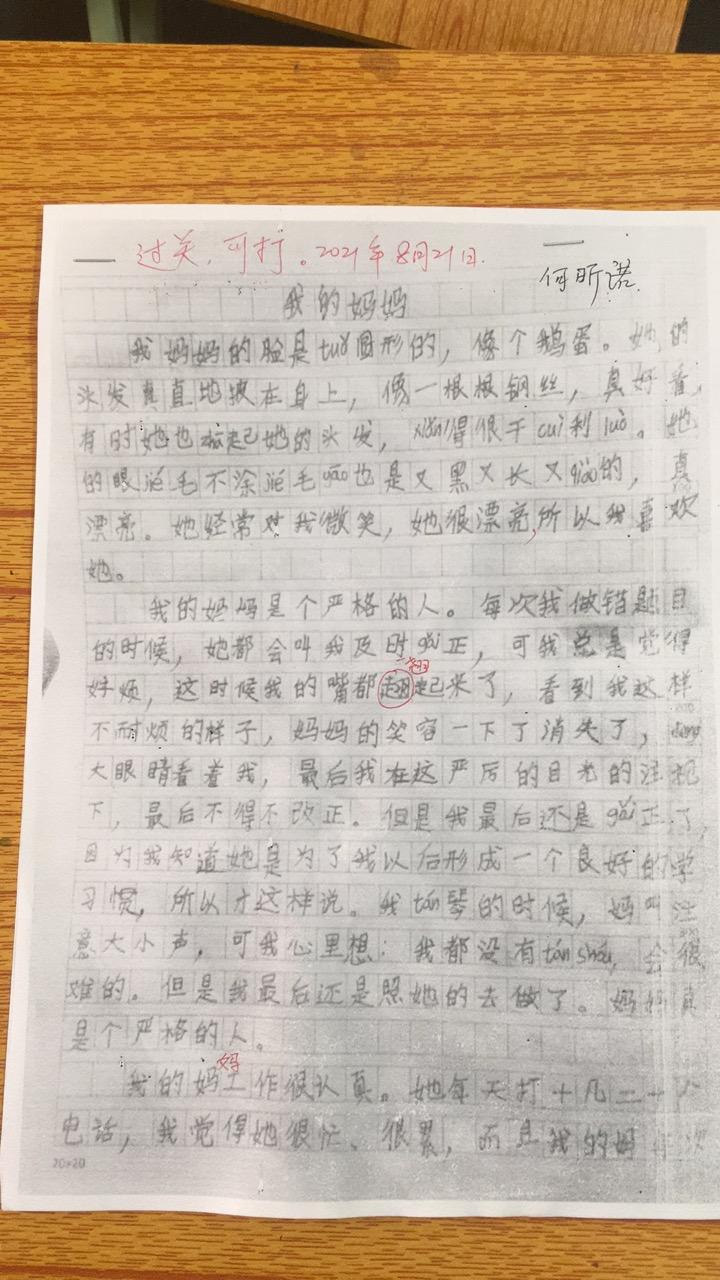 过关，可打。2021年8月21日.
何昕诺
我的妈妈
我妈妈的脸是tuǒ圆形的，像个鹅蛋。她的
头发直直地披在身上，像一根根钢丝，真好看，
有时她也扎起她的头发，xiǎn得很干cuì利luò。她
的眼jié毛不涂jié毛gāo也是又黑又长又qiào的，真
漂亮。她经常对我微笑，她很漂亮，所以我喜欢
她。
我的妈妈是个严格的人。每次我做错题目
的时候，她都会叫我及时gǎi正，可我总是觉得
好烦，这时候我的嘴都翘起来了，看到我这样
翘
不耐烦的样子，妈妈的笑容一下了消失了，dèng
大眼睛看着我，最后我在这严厉的目光的注视
下，最后不得不改正。但是我最后还是gǎi正了，
因为我知道她是为了我以后形成一个良好的学
习惯，所以才这样说。我tán琴的时候，妈叫注
意大小声，可我心里想：我都没有tán shóu，会很
难的。但是我最后还是照她的去做了。妈妈真
是个严格的人。
我的妈妈工作很认真。她每天打十几二十个
电话，我觉得她很忙、很累，而且我的妈 次
20×20